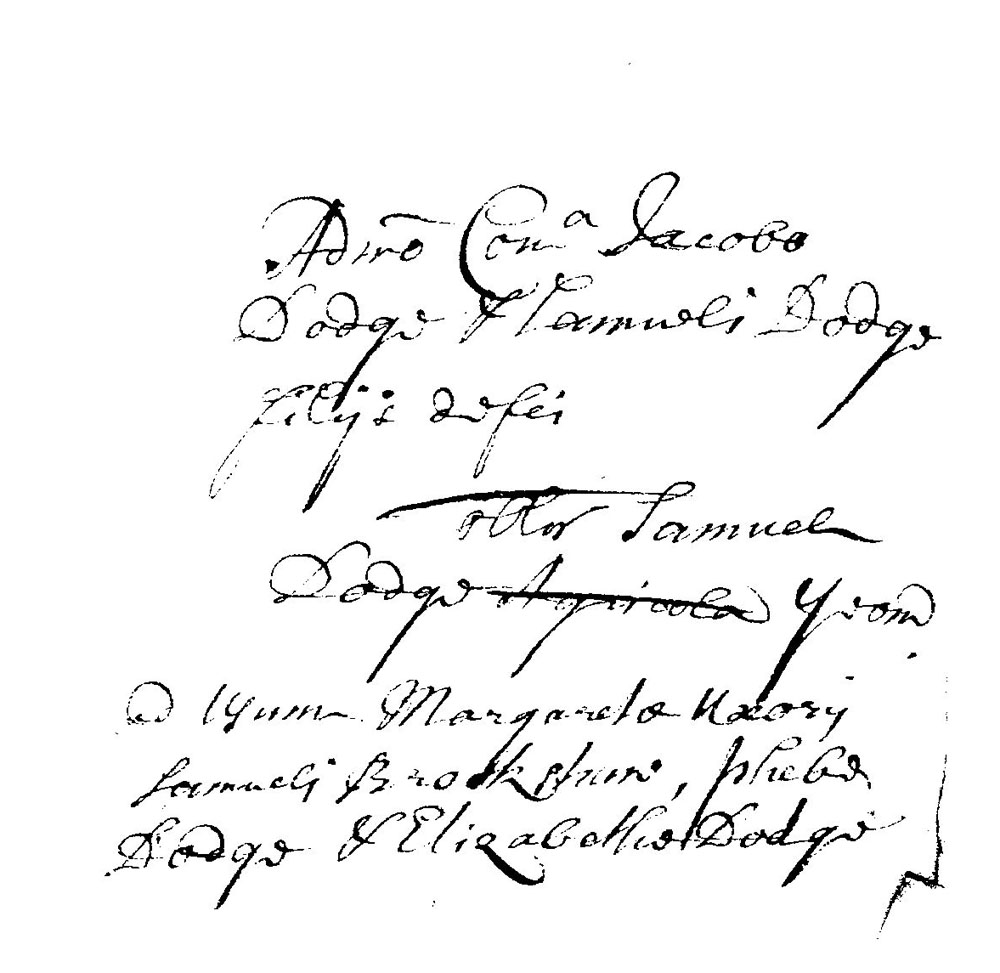 Admō Comᵃ Jacobo
Dodge & Samueli Dodge
filijs defci
Samuel
Dodge Agricola Yeom
ad usum Margaretæ Uxorij
Samueli Brookshure, Phebæ
Dodge & Elizabethæ Dodge